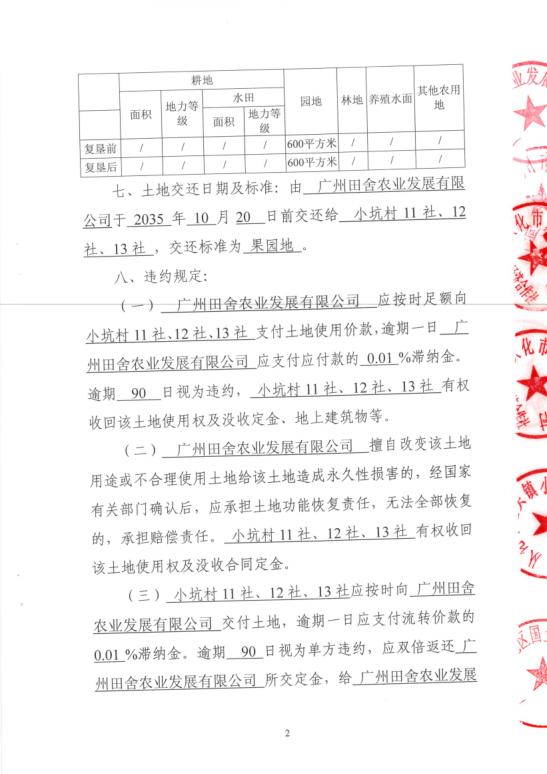 耕地 园地 林地 养殖水面 其他农用地
面积 地力等级 水田
面积 地力等级
复垦前 / / / / 600平方米 / / /
复垦后 / / / / 600平方米 / / /
七、土地交还日期及标准：由 广州田舍农业发展有限
公司于 2035 年 10 月 20 日前交还给 小坑村 11 社、12
社、13 社，交还标准为 果园地 。
八、违约规定：
（一） 广州田舍农业发展有限公司 应按时足额向
小坑村 11 社、12 社、13 社 支付土地使用价款，逾期一日 广
州田舍农业发展有限公司 应支付应付款的 0.01 %滞纳金。
逾期 90 日视为违约， 小坑村 11 社、12 社、13 社 有权
收回该土地使用权及没收定金、地上建筑物等。
（二） 广州田舍农业发展有限公司 擅自改变该土地
用途或不合理使用土地给该土地造成永久性损害的，经国家
有关部门确认后，应承担土地功能恢复责任，无法全部恢复
的，承担赔偿责任。 小坑村 11 社、12 社、13 社 有权收回
该土地使用权及没收合同定金。
（三） 小坑村 11 社、12 社、13 社应按时向 广州田舍
农业发展有限公司 交付土地，逾期一日应支付流转价款的
0.01 %滞纳金。逾期 90 日视为单方违约，应双倍返还 广
州田舍农业发展有限公司 所交定金，给 广州田舍农业发展
2
业发展
化市
化市
镇小
区国土